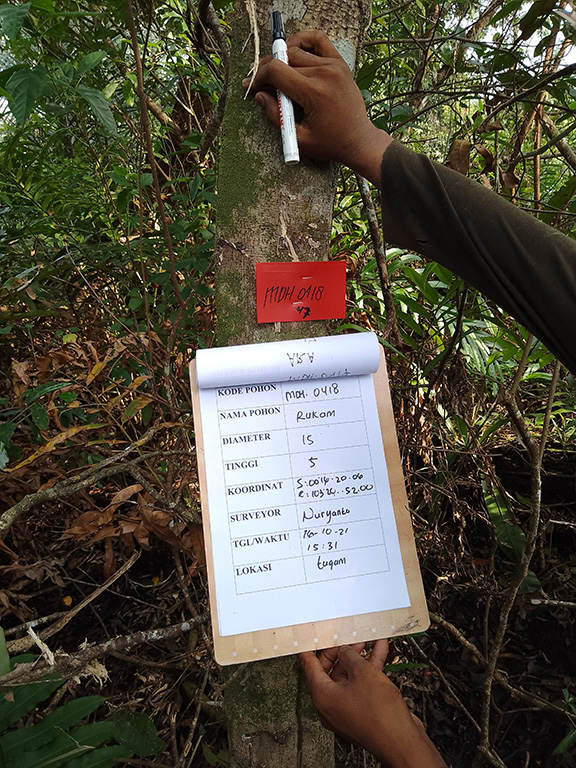 MDH 0418
47
ARA
KODE POHON MDH. 0418
NAMA POHON Rukam
DIAMETER 15
TINGGI 5
KOORDINAT S:0014.20.06
E:10324..52.00
SURVEYOR Nuryanto
TGL/WAKTU 16-10-21
15:31
LOKASI tugam